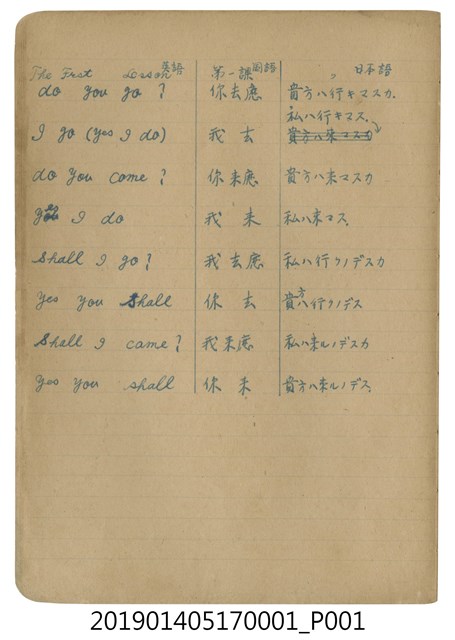 The First Lesson 英語 第一課 國語 日本語
do you go? 你去麽 貴方ハ行キマスカ.
私ハ行キマス.
I go (yes I do) 我去 貴方ハ来マスカ
do you come? 你来麽 貴方ハ来マスカ
yes I do 我来 私ハ来マス.
Shall I go? 我去麽 私ハ行クノデスカ
yes you shall 你去 貴方ハ行クノデス
Shall I came? 我来麽 私ハ来ルノデスカ
yes you shall 你来 貴方ハ来ルノデス.
201901405170001_P001